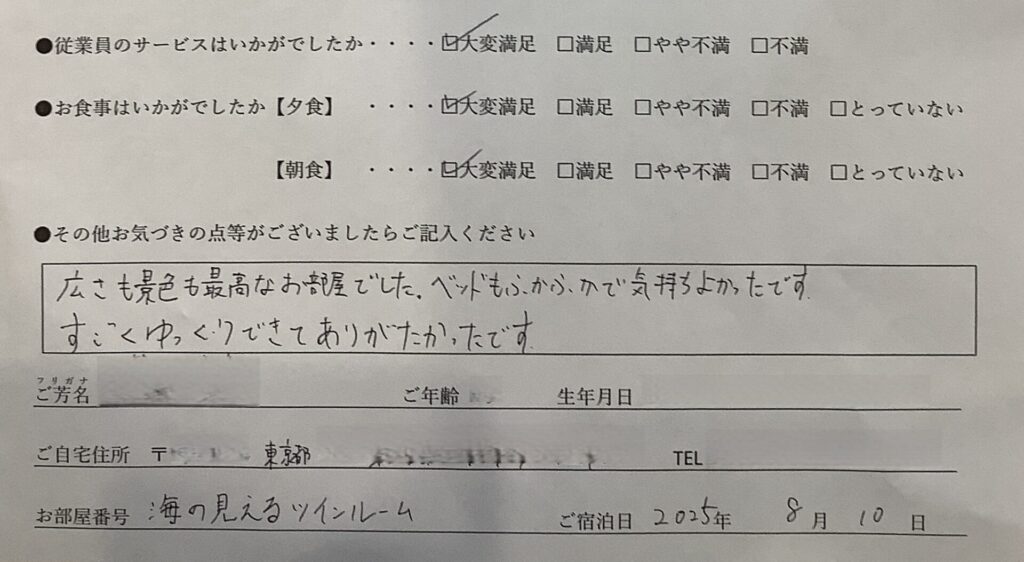 ●従業員のサービスはいかがでしたか・・・・☑大変満足 □満足 □やや不満 □不満
●お食事はいかがでしたか【夕食】 ・・・・☑大変満足 □満足 □やや不満 □不満 □とっていない
【朝食】 ・・・・☑大変満足 □満足 □やや不満 □不満 □とっていない
●その他お気づきの点等がございましたらご記入ください
広さも景色も最高なお部屋でした。ベッドもふかふかで気持ちよかったです
すごくゆっくりできてありがたかったです
フリガナ
ご芳名 ご年齢 生年月日
ご自宅住所 〒 東京都 TEL
お部屋番号 海の見えるツインルーム ご宿泊日 2025年 8月 10日